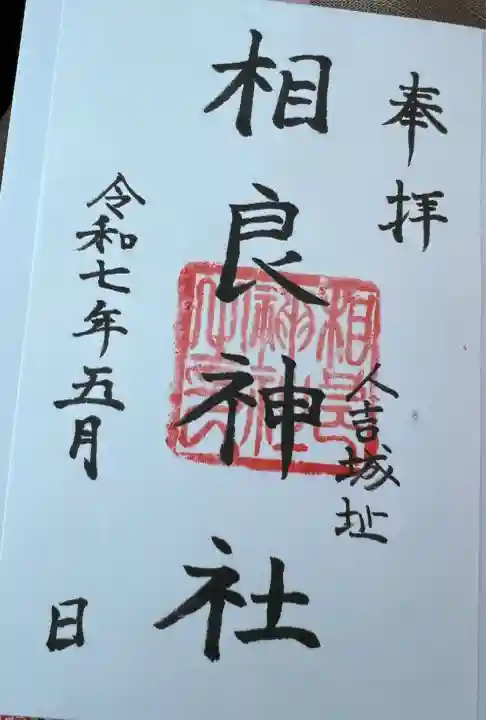 奉拝
人吉城址
相良神社
相良
神社
令和七年五月
日